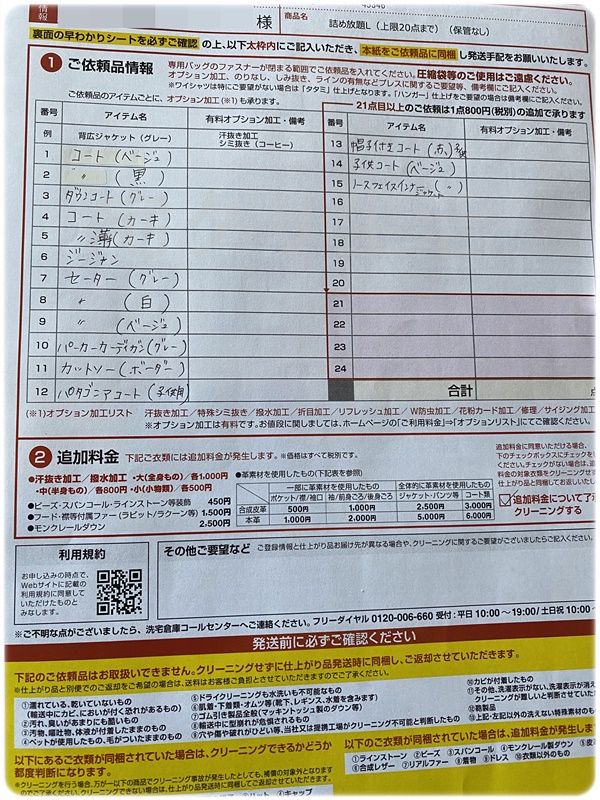 情報
様
商品名
詰め放題L（上限20点まで）（保管なし）
裏面の早わかりシートを必ずご確認 の上、以下太枠内にご記入いただき、本紙をご依頼品に同梱し発送手配をお願いいたします。
1 ご依頼品情報
専用バッグのファスナーが閉まる範囲でご依頼品を入れてください。圧縮袋等のご使用はご遠慮ください。
オプション加工、のりなし、しみ抜き、ラインの有無などプレスに関するご要望等、備考欄にご記入ください。
※ワイシャツは特にご要望がない場合は「タタミ」仕上げとなります。「ハンガー」仕上げをご要望の場合は備考欄にご記入ください。
ご依頼品のアイテムごとに、オプション加工（※1）も承ります。
21点目以上のご依頼は1点800円(税別)の追加で承ります
番号 アイテム名 有料オプション加工・備考
例 背広ジャケット（グレー） 汗抜き加工 シミ抜き（コーヒー）
1 コート（ベージュ）
2 〃（黒）
3 ダウンコート（グレー）
4 コート（カーキ）
5 〃薄（カーキ）
6 ジージャン
7 セーター（グレー）
8 〃（白）
9 〃（ベージュ）
10 パーカーカーディガン（グレー）
11 カットソー（ボーダー）
12 パタゴニアコート（子供用）
番号 アイテム名 有料オプション加工・備考
13 帽子付きコート
14 子供コート（ベージュ）
15 ノースフェイスインナージャケット（〃）
16
17
18
19
20
21
22
23
24
合計 点
(※1)オプション加工リスト 汗抜き加工／特殊シミ抜き／撥水加工／折目加工／リフレッシュ加工／W防虫加工／花粉ガード加工／修理／サイジング加工
※オプション加工は有料です。お値段に関しましては、ホームページの「ご利用料金」⇒「オプションリスト」にてご確認ください。
2 追加料金 下記ご衣類には追加料金が発生します。※価格はすべて税別です。
●汗抜き加工／撥水加工・大(全身もの)／各1,000円
・中(半身もの)／各800円・小(小物類)／各500円
●ビーズ・スパンコール・ラインストーン等装飾 450円
●フード・襟等付属ファー（ラビット/ラクーン等） 1,500円
●モンクレールダウン 2,500円
●革素材を使用したもの(下記表を参照)
一部に革素材を使用したもの 全体的に革素材を使用したもの
ポケット/襟/袖口 袖/前身ごろ/後身ごろ ジャケット・パンツ等 コート類
合成皮革 500円 1,000円 2,500円 3,000円
本革 1,000円 2,000円 5,000円 6,000円
追加料金に同意いただける場合、
下のチェックボックスにチェックをし
ください。チェックがない場合は、追
料金の対象衣類をクリーニングせ
仕上がり品と同梱してお返しいたし
追加料金について了
クリーニングする
利用規約
お申し込みの時点で、
Webサイトに記載の
利用規約に同意して
いただけたものと
みなします。
その他ご要望など ご登録情報と仕上がり品お届け先が異なる場合や、クリーニングに関するご要望がございましたらご記入ください。
※ご不明な点がございましたら、洗宅倉庫コールセンターへご連絡ください。フリーダイヤル 0120-006-660 受付：平日 10:00～19:00/土日祝 10:00～
発送前に必ずご確認ください
下記のご依頼品はお取扱いできません。クリーニングせずに仕上がり品発送時に同梱し、ご返却させていただきます。
※仕上がり品と別便でのご返却をご希望の場合は、送料はお客様ご負担とさせていただきますのでご了承ください。
①濡れている、乾いていないもの
（輸送中にカビ、においが付く恐れがあるもの）
②汚れ、臭いがあまりにも酷いもの
③汚物、嘔吐物、体液が付着したままのもの
④ペットが使用したもの、毛がついたままのもの
⑤ドライクリーニングも水洗いも不可能なもの
⑥肌着・下着類・オムツ等(靴下、レギンス、水着を含みます)
⑦ゴム引き製品全般(マッキントッシュ製のダウン等)
⑧輸送中に型崩れが危惧されるもの
⑨穴や傷や破れがひどい等、当社又は提携工場がクリーニング不可能と判断したもの
⑩カビが付着したもの
⑪その他、洗濯表示がない、洗濯表示が消え
クリーニングが難しいと判断させていただ
⑫鞄製品
⑬上記・左記以外の洗えない特殊素材のも
以下にあるご衣類が同梱されていた場合は、クリーニングできるかどうか
都度判断になります。
以下のご衣類が同梱されていた場合は、追加料金が発生しま
①ラインストーン ②ビーズ ③スパンコール ④モンクレール製ダウン
⑥合成レザー ⑦リアルファー ⑧着物 ⑨ドレス ⑩衣類以外のもの